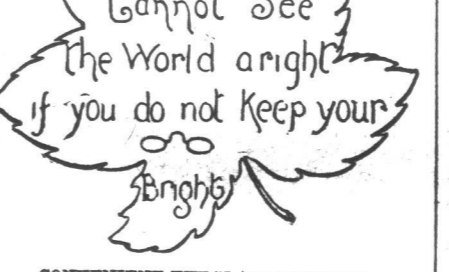 Cannot See
the World aright
if you do not Keep your
Bright